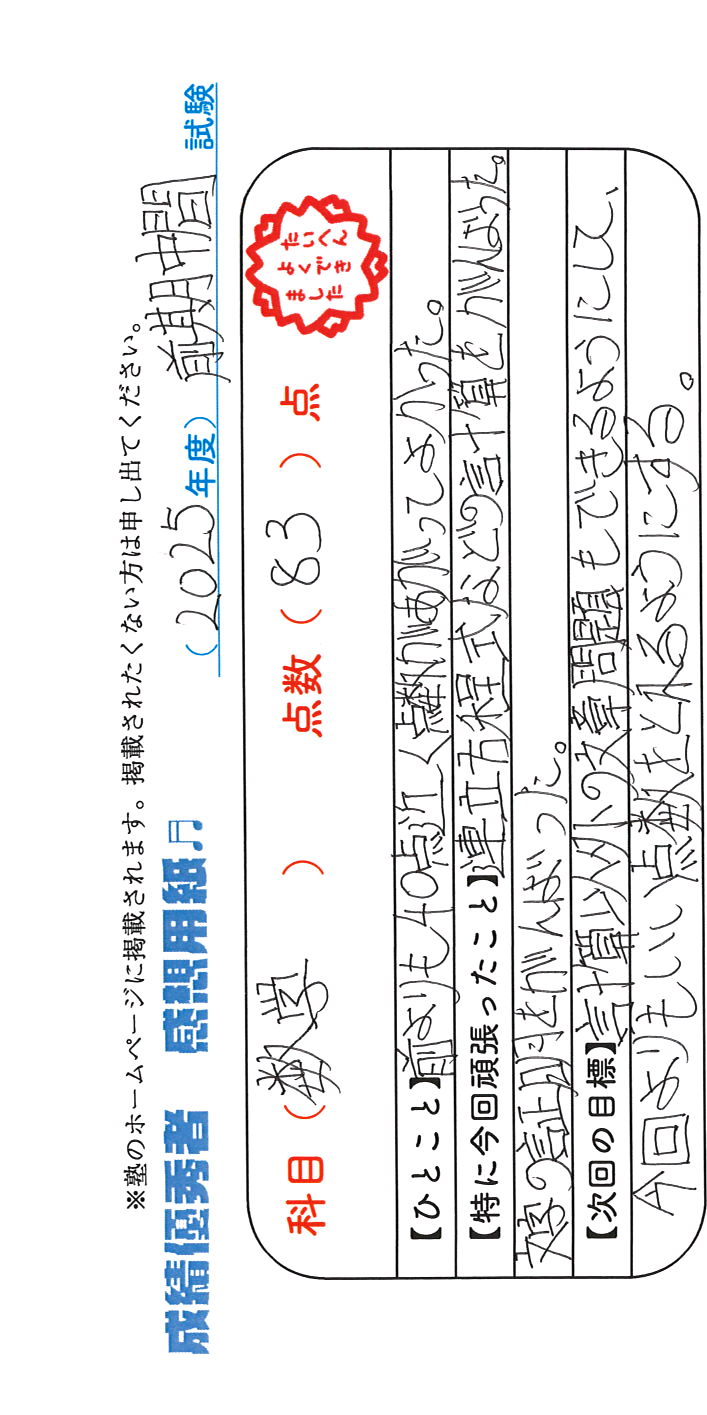 ※塾のホームページに掲載されます。掲載されたくない方は申し出てください。
成績優秀者 感想用紙♫ (2025年度) 前期中間 試験
科目 (数学) 点数 (83) 点
たいへん
よくでき
ました
【ひとこと】前よりも40点近く点数があがってよかった。
【特に今回頑張ったこと】連立方程式などの計算をがんばった。
の証明をがんばった。
【次回の目標】計算以外の文章問題もできるようにして、
今回よりもいい点数をとれるようにする。